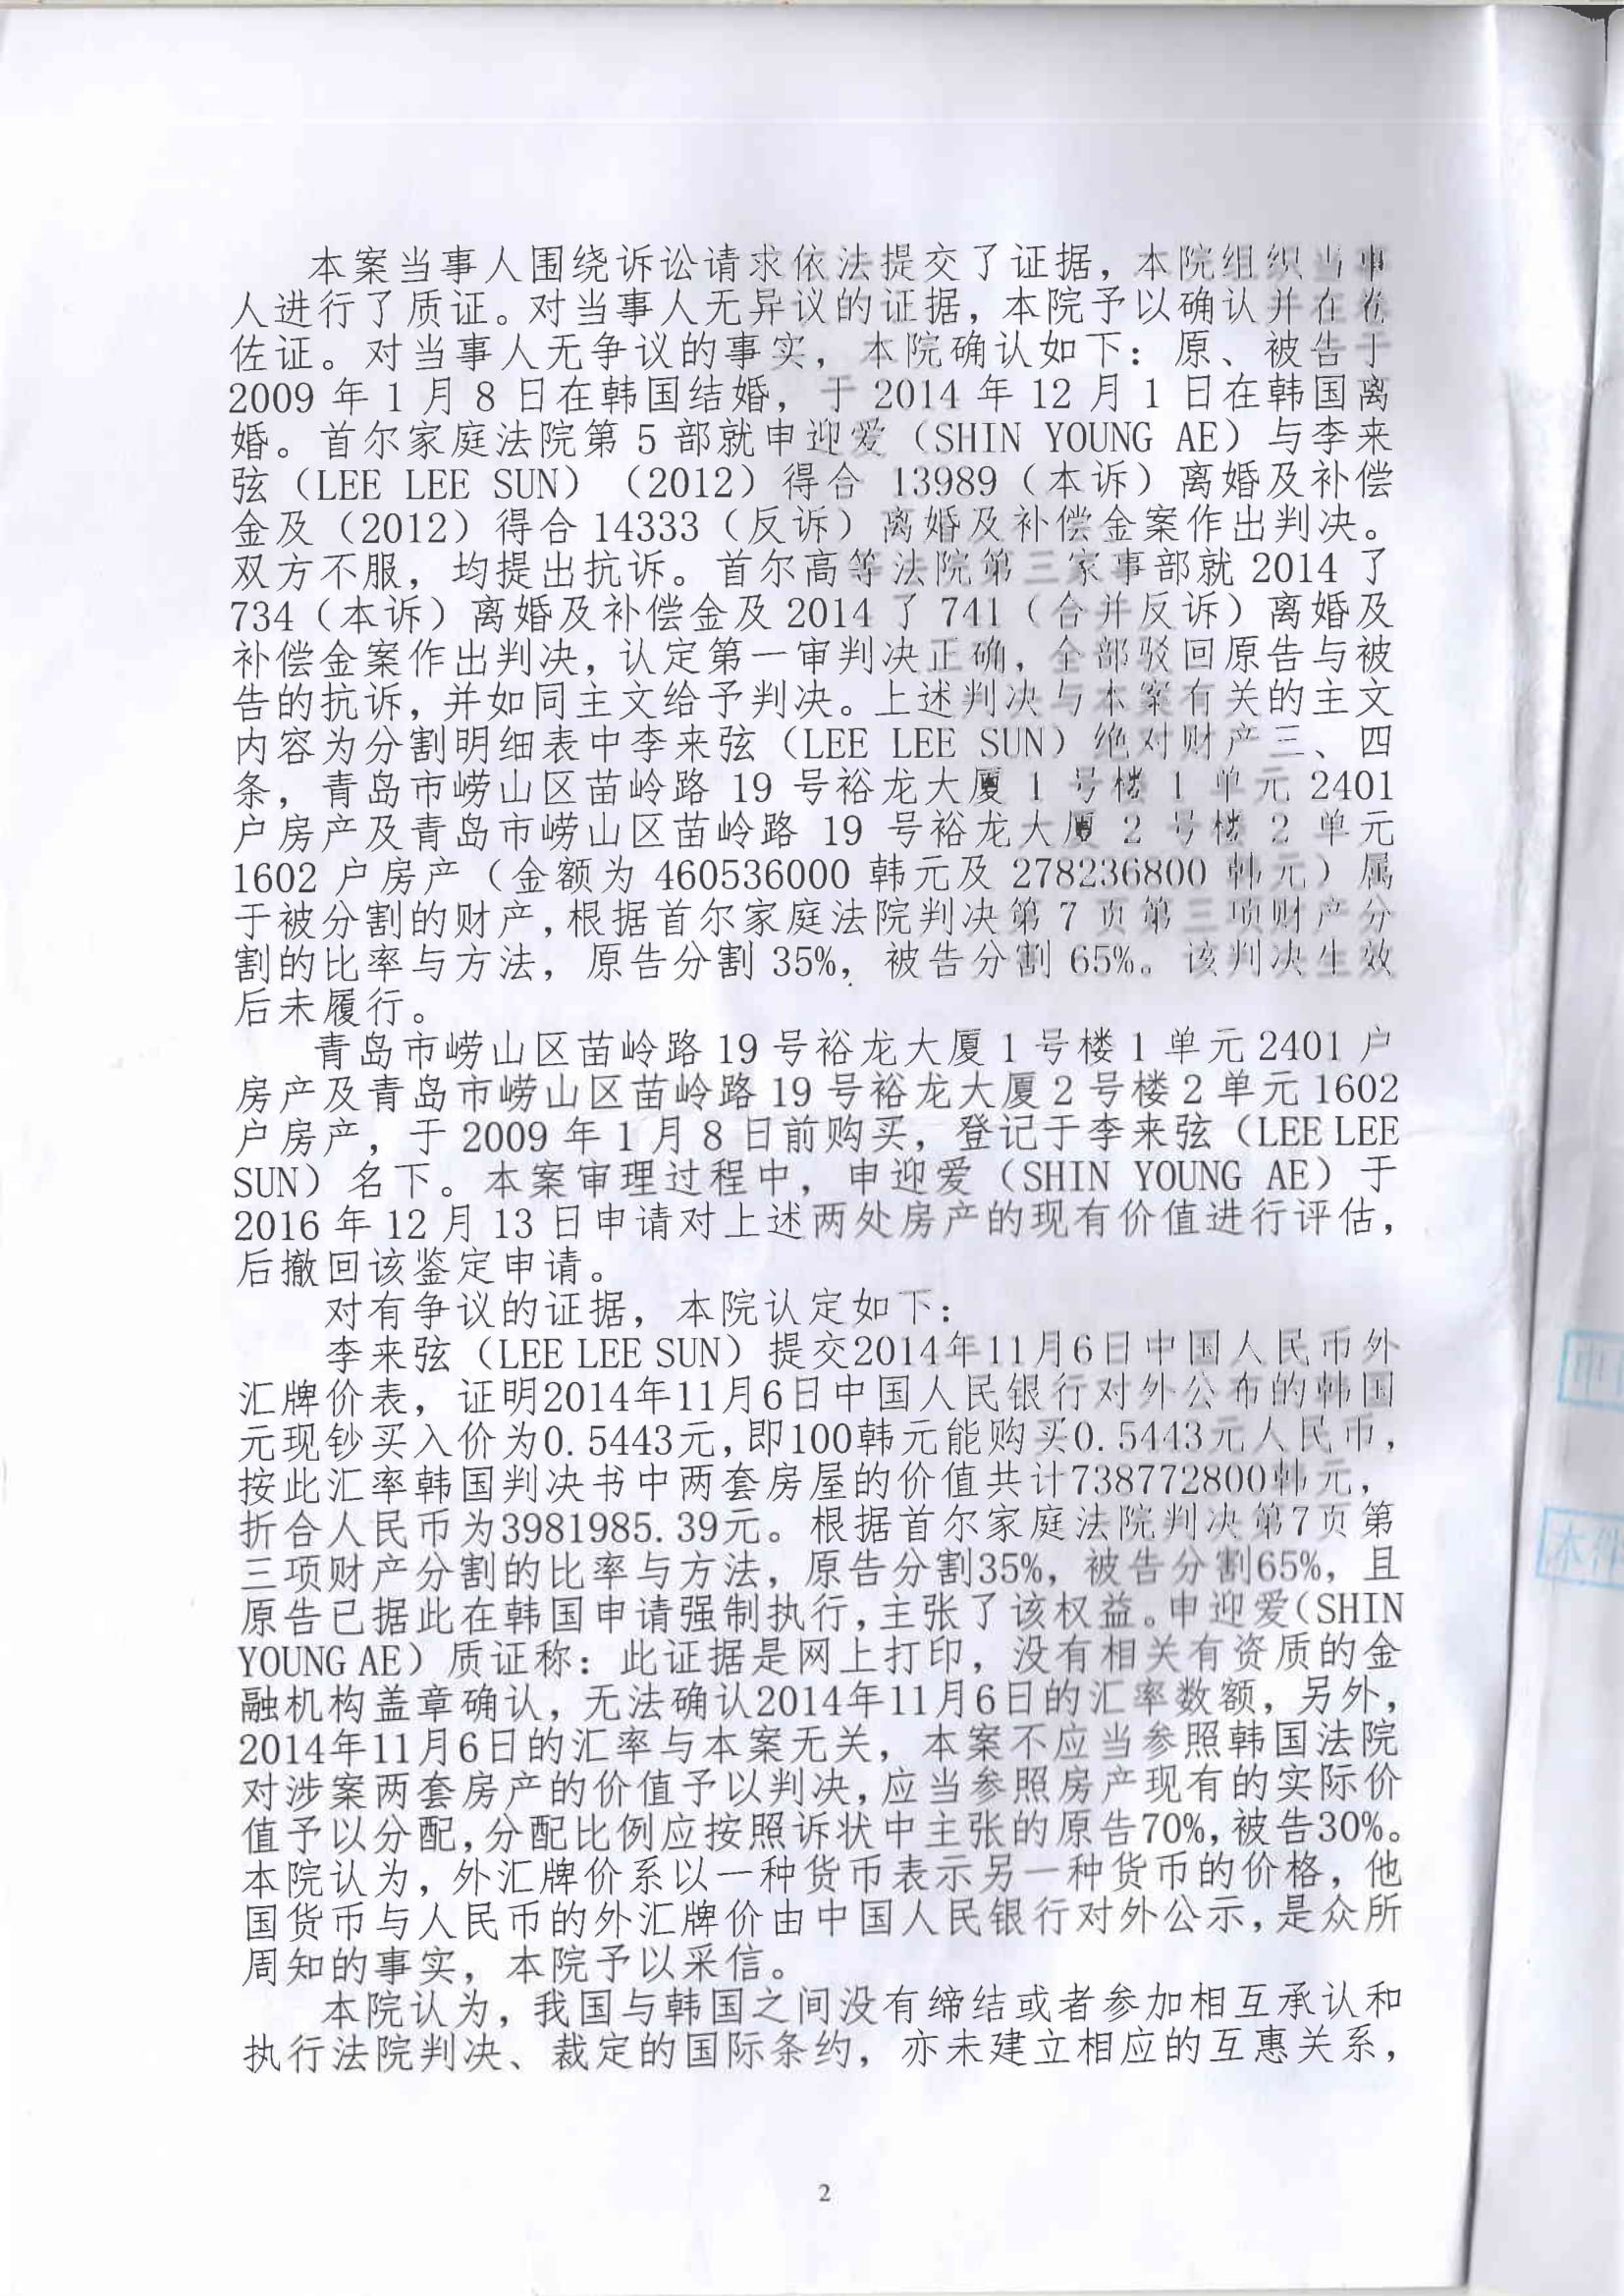 本案当事人围绕诉讼请求依法提交了证据，本院组织当事
人进行了质证。对当事人无异议的证据，本院予以确认并在卷
佐证。对当事人无争议的事实，本院确认如下：原、被告于
2009 年 1 月 8 日在韩国结婚，于 2014 年 12 月 1 日在韩国离
婚。首尔家庭法院第 5 部就申迎爱（SHIN YOUNG AE）与李来
弦（LEE LEE SUN）（2012）得合 13989（本诉）离婚及补偿
金及（2012）得合 14333（反诉）离婚及补偿金案作出判决。
双方不服，均提出抗诉。首尔高等法院第三家事部就 2014 了
734（本诉）离婚及补偿金及 2014 了 741（合并反诉）离婚及
补偿金案作出判决，认定第一审判决正确，全部驳回原告与被
告的抗诉，并如同主文给予判决。上述判决与本案有关的主文
内容为分割明细表中李来弦（LEE LEE SUN）绝对财产三、四
条，青岛市崂山区苗岭路 19 号裕龙大厦 1 号楼 1 单元 2401
户房产及青岛市崂山区苗岭路 19 号裕龙大厦 2 号楼 2 单元
1602 户房产（金额为 460536000 韩元及 278236800 韩元）属
于被分割的财产，根据首尔家庭法院判决第 7 页第三项财产分
割的比率与方法，原告分割 35%，被告分割 65%。该判决生效
后未履行。
青岛市崂山区苗岭路 19 号裕龙大厦 1 号楼 1 单元 2401 户
房产及青岛市崂山区苗岭路 19 号裕龙大厦 2 号楼 2 单元 1602
户房产，于 2009 年 1 月 8 日前购买，登记于李来弦（LEE LEE
SUN）名下。本案审理过程中，申迎爱（SHIN YOUNG AE）于
2016 年 12 月 13 日申请对上述两处房产的现有价值进行评估，
后撤回该鉴定申请。
对有争议的证据，本院认定如下：
李来弦（LEE LEE SUN）提交2014年11月6日中国人民币外
汇牌价表，证明2014年11月6日中国人民银行对外公布的韩国
元现钞买入价为0.5443元，即100韩元能购买0.5443元人民币，
按此汇率韩国判决书中两套房屋的价值共计738772800韩元，
折合人民币为3981985.39元。根据首尔家庭法院判决第7页第
三项财产分割的比率与方法，原告分割35%，被告分割65%，且
原告已据此在韩国申请强制执行，主张了该权益。申迎爱（SHIN
YOUNG AE）质证称：此证据是网上打印，没有相关有资质的金
融机构盖章确认，无法确认2014年11月6日的汇率数额，另外，
2014年11月6日的汇率与本案无关，本案不应当参照韩国法院
对涉案两套房产的价值予以判决，应当参照房产现有的实际价
值予以分配，分配比例应按照诉状中主张的原告70%，被告30%。
本院认为，外汇牌价系以一种货币表示另一种货币的价格，他
国货币与人民币的外汇牌价由中国人民银行对外公示，是众所
周知的事实，本院予以采信。
本院认为，我国与韩国之间没有缔结或者参加相互承认和
执行法院判决、裁定的国际条约，亦未建立相应的互惠关系，
2